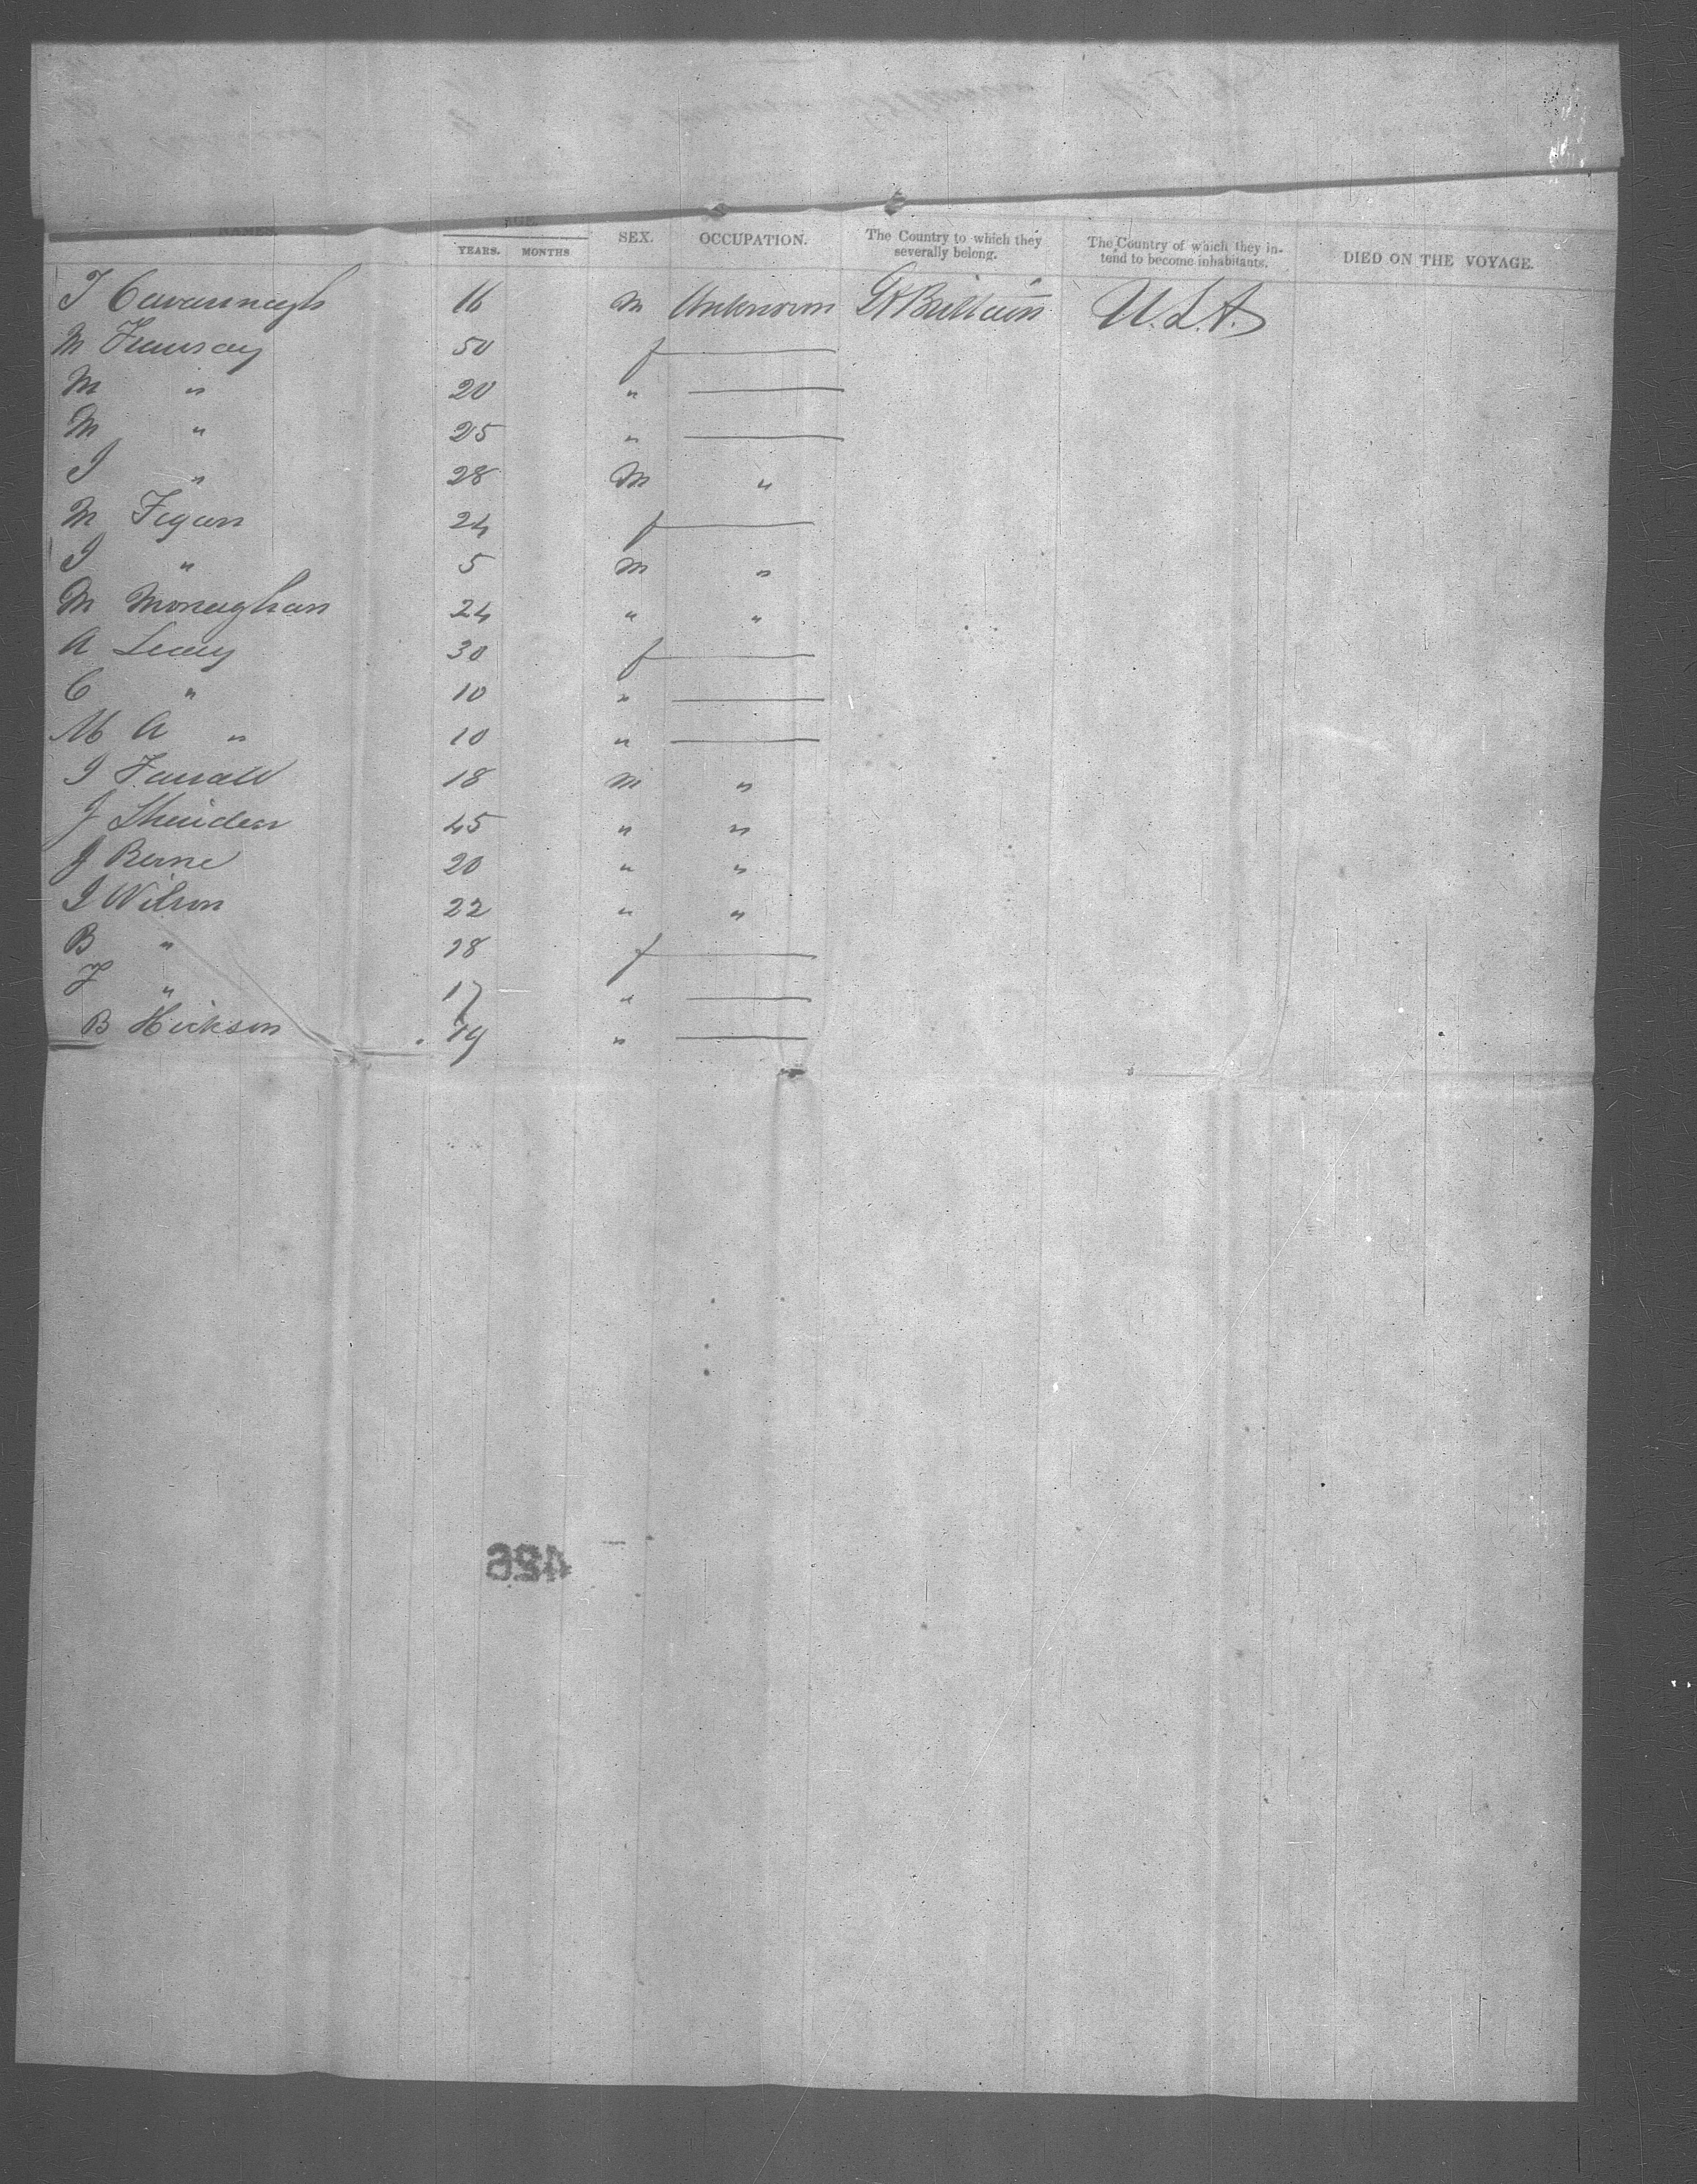 NAMES. AGE. SEX. OCCUPATION. The Country to which they severally belong. The Country of which they intend to become inhabitants. DIED ON THE VOYAGE.
YEARS. MONTHS
T Cavannagh 16 M Unknown Gt Brittain U.S.A.
M 50 f —
M " 20 " —
M " 25 " —
J " 28 M "
M Fegan 24 f —
J " 5 M "
M Monaghan 24 " "
A Leary 30 f —
C " 10 " —
M A " 10 " —
J Farrall 18 M "
J Sheridan 45 " "
J Berne 20 " "
J Wilson 22 " "
B " 18 f —
F " 17 " —
B Hickson 19 " —
426